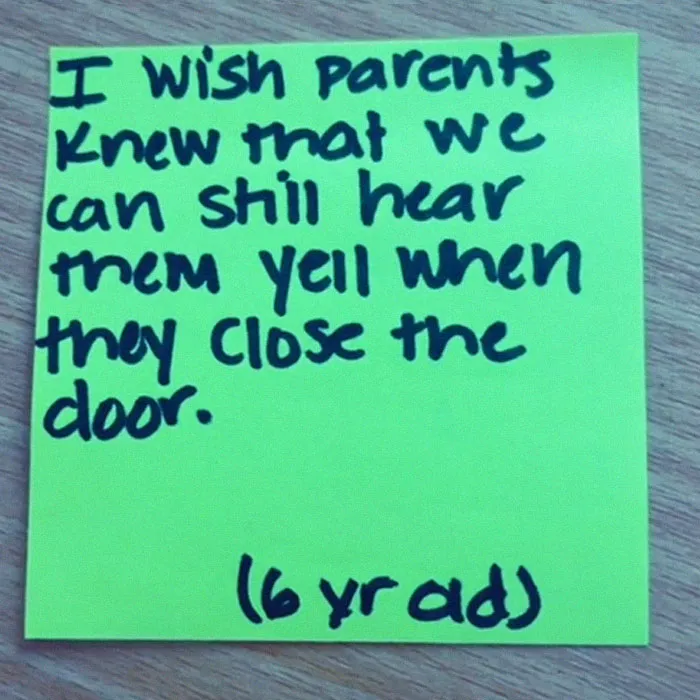 I wish parents
knew that we
can still hear
them yell when
they close the
door.
(6 yr old)